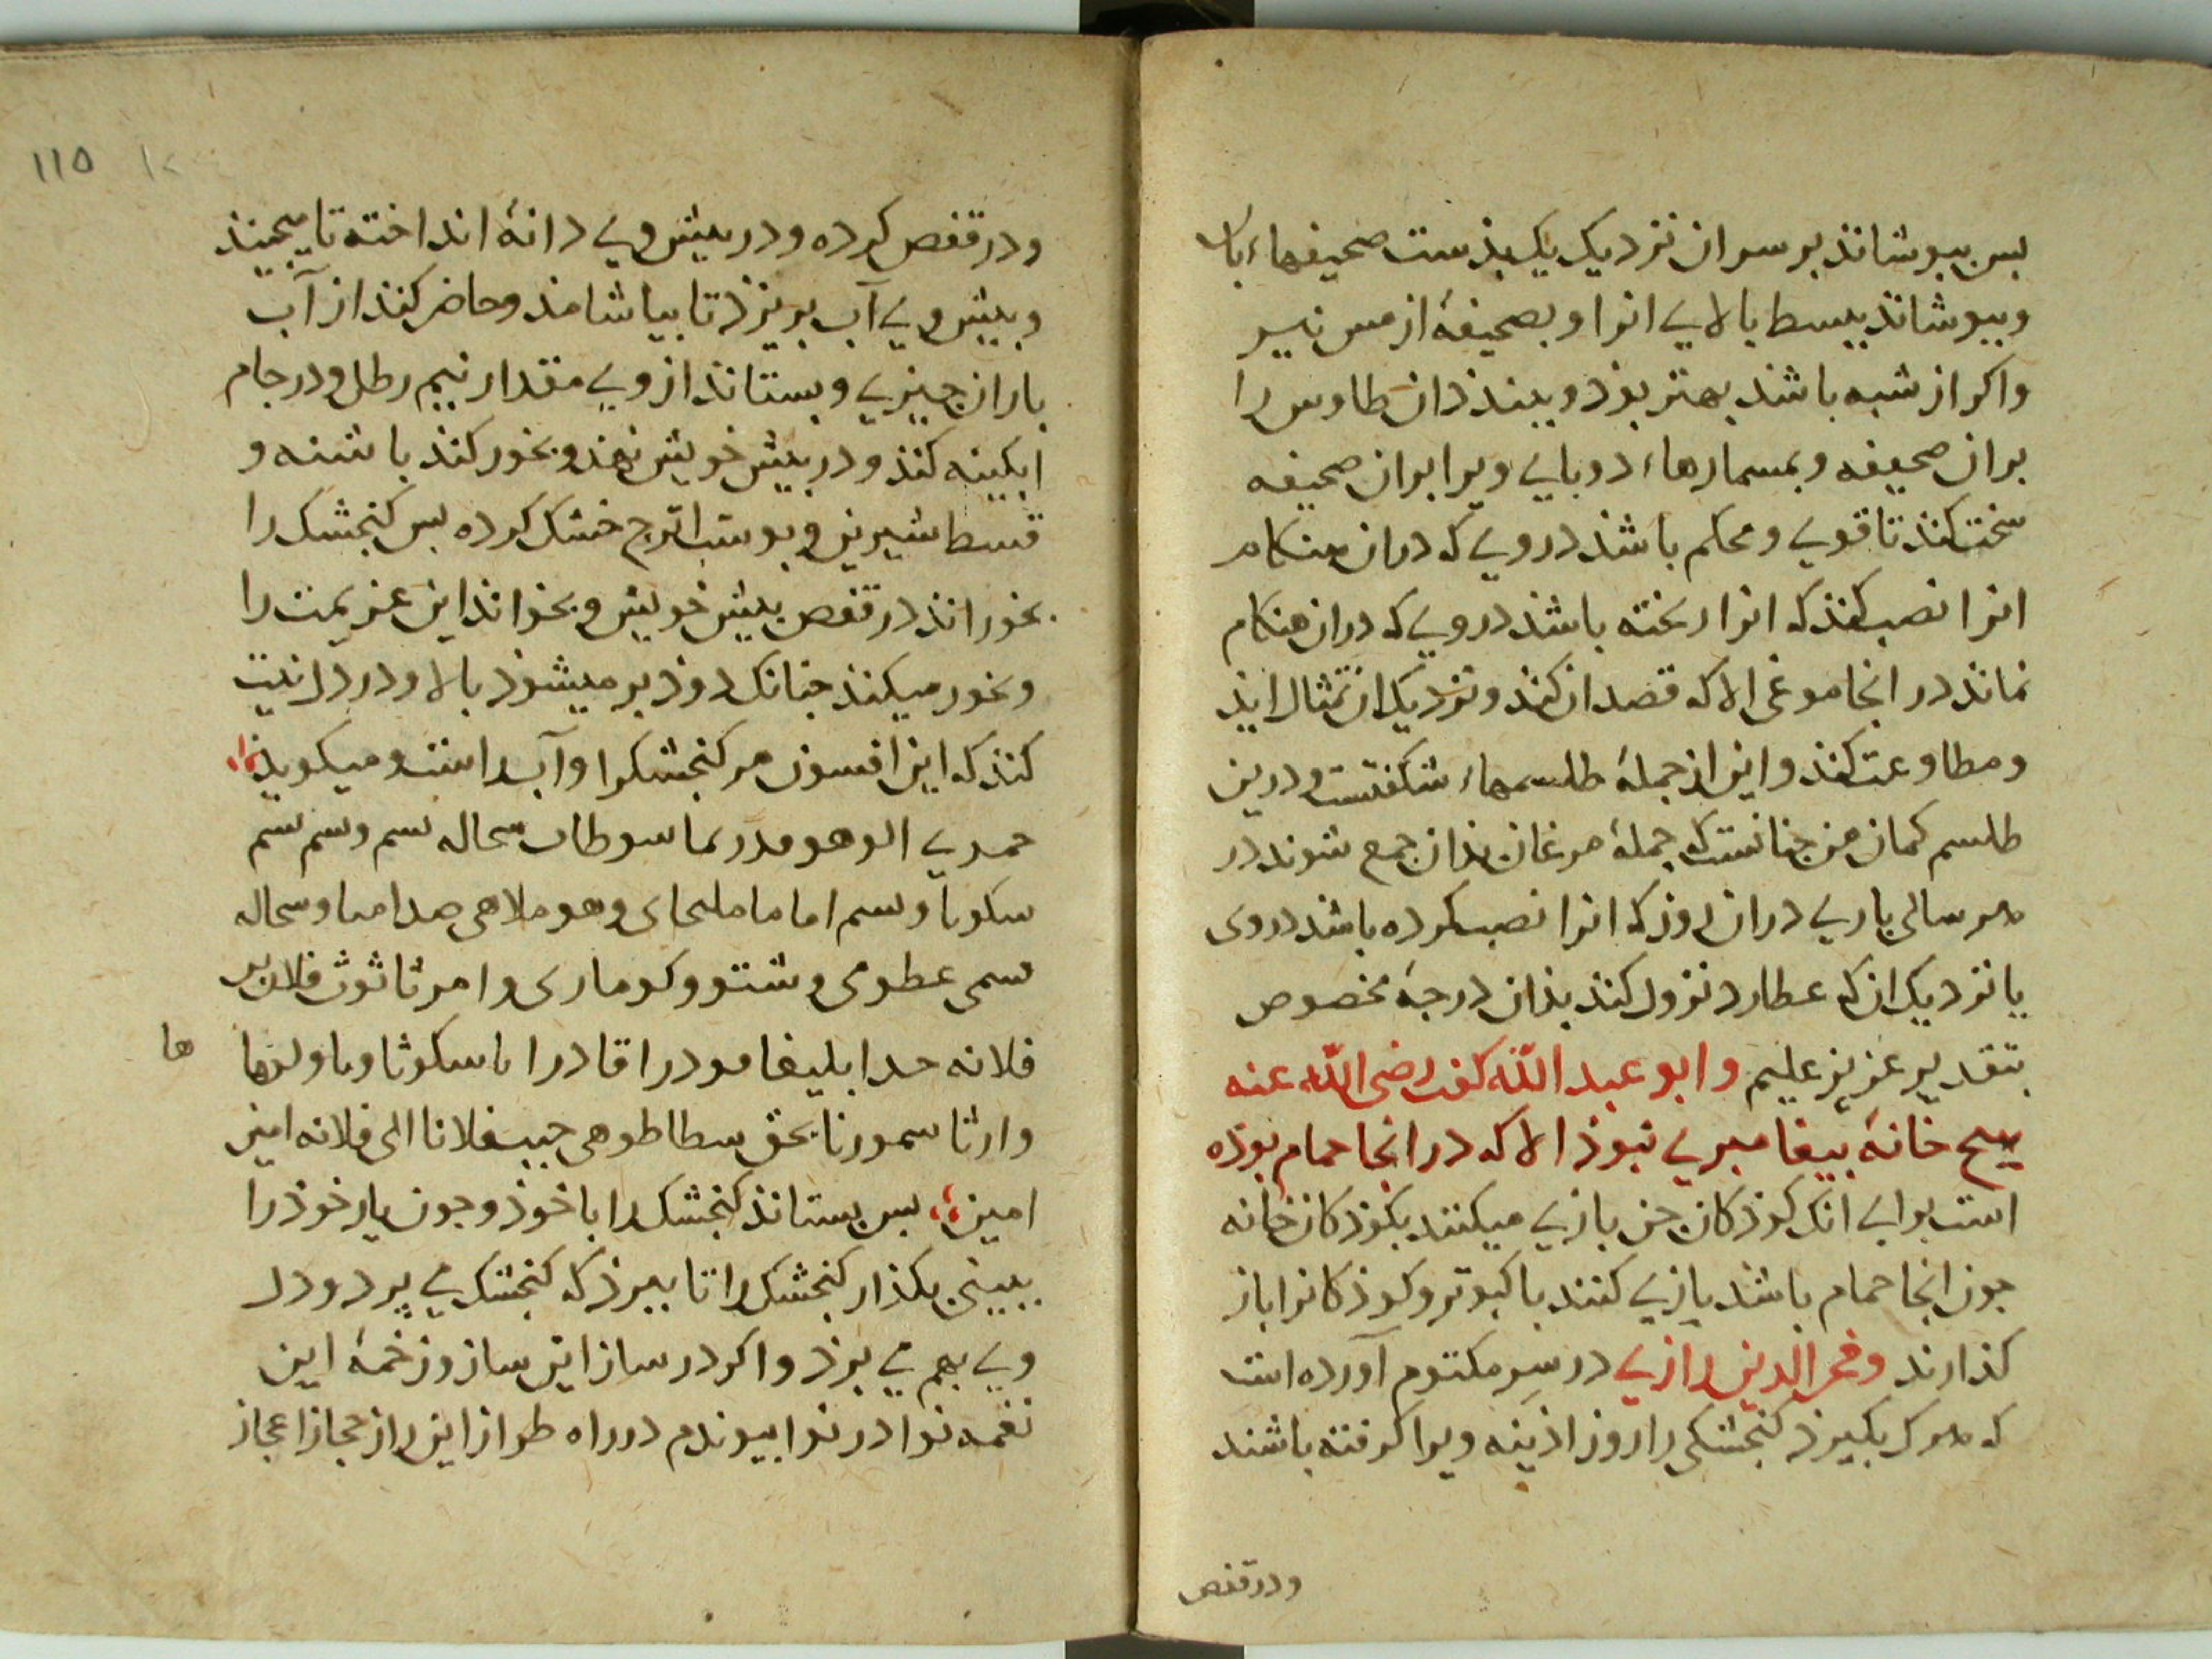 بس ببوشاند بر سر ان نزدیک یک بذست صحیفهاء
وببوشاند ببسط بالایی انرا و بصحیفهٔ از مس نیز
واکر از شبه باشد بهتر بوذ و ببندذ ان طاوس را
بران صحیفه و بمسمارهاء دو بایی ویرا بران صحیفه
سخت کنذ تا قوی و محکم باشذ در وی که دران هنکام
انرا نصب کنذ که انرا ریخته باشذ در وی که دران هنکام
نماند در انجا مرغی الا که قصد ان کند و نزدیک ان تمثال ایذ
ومطاوعت کنذ و این از جملهٔ طلسمهاء شکفتست و درین
طلسم کمان من جنانست که جملهٔ مرغان بذان جمع شوند در
هر سالی باری دران روز که انرا نصب کرده باشد در وی
یا نزدیک ان که عطارد نزول کند بذان درجهٔ مخصوص
بتقدیر عزیز علیم وابو عبد الله کفت رضی الله عنه
هیج خانهٔ بیغامبری نبوذ الا که در انجا حمام بوذه
است برای انک کوذکان جن بازی میکنند بکوذکان خانه
جون انجا حمام باشد بازی کنند با کبوتر و کوذکانرا باز
کذارند وفخر الدین رازی در سر مکتوم آورده است
که هرک بکیرذ کنجشکی را روز اذینه ویرا کرفته باشند
ودر قفص
١١٥
ودر قفص کرده و در بیش وی دانهٔ انداخته تا میجیند
و بیش وی آب بریزذ تا بیاشامذ و حاضر کنذ از آب
باران جیزی و بستانذ از وی مقدار نیم رطل و در جام
ابکینه کنذ و در بیش خویش نهذ و بخور کنذ با شنه و
قسط شیرین و بوست اترج خشک کرده بس کنجشک را
بخوراند در قفص بیش خویش و بخواند این عزیمت را
وبخور میکنذ جنانک دوذ بر میشوذ بالا و در دل نیت
کنذ که این افسون مر کنجشکرا و آب راست و میکوید
سکوبا وسم اماما ملیحای وهو ملاهی
سمی عطومی و شتو و کوماری و امرثاثوث فلان بن
فلانه حدا بلیغا مودرا قادرا
ها
وارثا سمورنا بحق سطاطوهی جیب فلانا الی فلانه امین
امین بس بستاند کنجشک را با خوذ و جون یار خوذ را
ببینی بکذار کنجشک را تا ببرذ که کنجشک می پرد و دل
وی بهم می برذ و اکر در ساز این ساز و زخمهٔ این
نغمه نوا در نوا بیوندم در راه طراز این راز حجاز اعجاز